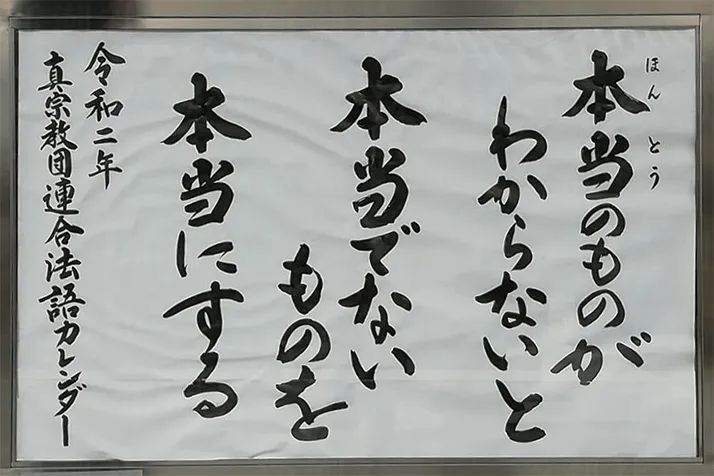 本当のものが
ほんとう
わからないと
本当でない
ものを
本当にする
令和二年
真宗教団連合法語カレンダー